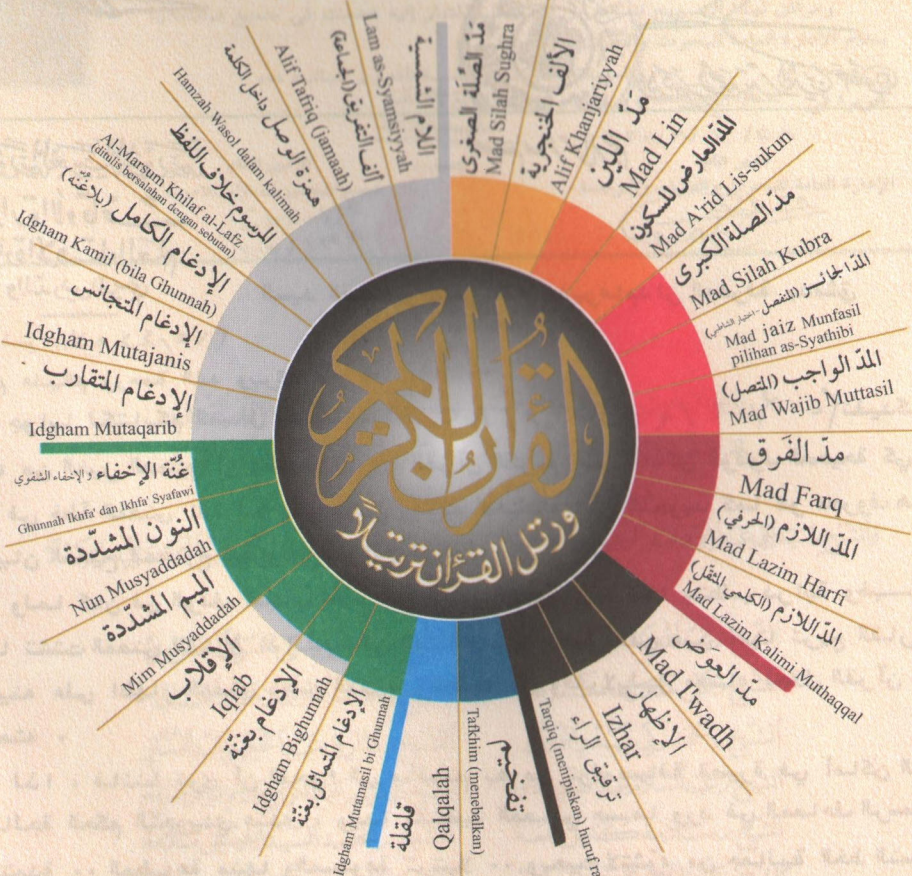 القرآن الكريم
ورتل القرآن ترتيلاً
مَدّ الصِّلَة الصغرى
Mad Silah Sughra
الألف الخنجرية
Alif Khanjariyyah
مَدّ اللين
Mad Lin
المدّ العارض للسكون
Mad A'rid Lis-sukun
مدّ الصلة الكبرى
Mad Silah Kubra
المدّ الجائز (المنفصل - اختيار الشاطبي)
Mad jaiz Munfasil
pilihan as-Syathibi
المدّ الواجب (المتصل)
Mad Wajib Muttasil
مدّ الفَرق
Mad Farq
المدّ اللازم (الحرفي)
Mad Lazim Harfi
المدّ اللازم (الكلمي المثقّل)
Mad Lazim Kalimi Muthaqqal
مدّ العوَض
Mad I'wadh
الإظهار
Izhar
ترقيق الراء
Tarqiq (menipiskan) huruf ra
تفخيم
Tafkhim (menebalkan)
Qalqalah
قلقلة
Idgham Mutamasil bi Ghunnah
الإدغام المتماثل بغنّة
Idgham Bighunnah
الإدغام بغنّة
Iqlab
الإقلاب
Mim Musyaddadah
الميم المشدّدة
Nun Musyaddadah
النون المشدّدة
Ghunnah Ikhfa' dan Ikhfa' Syafawi
غُنّة الإخفاء والإخفاء الشفوي
Idgham Mutaqarib
الإدغام المتقارب
Idgham Mutajanis
الإدغام المتجانس
Idgham Kamil (bila Ghunnah)
الإدغام الكامل (بلا غُنّه)
Al-Marsum Khilaf al-Lafz
(ditulis bersalahan dengan sebutan)
المرسوم خلاف اللفظ
Hamzah Wasol dalam kalimah
همزة الوصل داخل الكلمة
Alif Tafriq (jamaah)
ألف التفريق (الجماعة)
Lam as-Syamsiyyah
اللام الشمسية